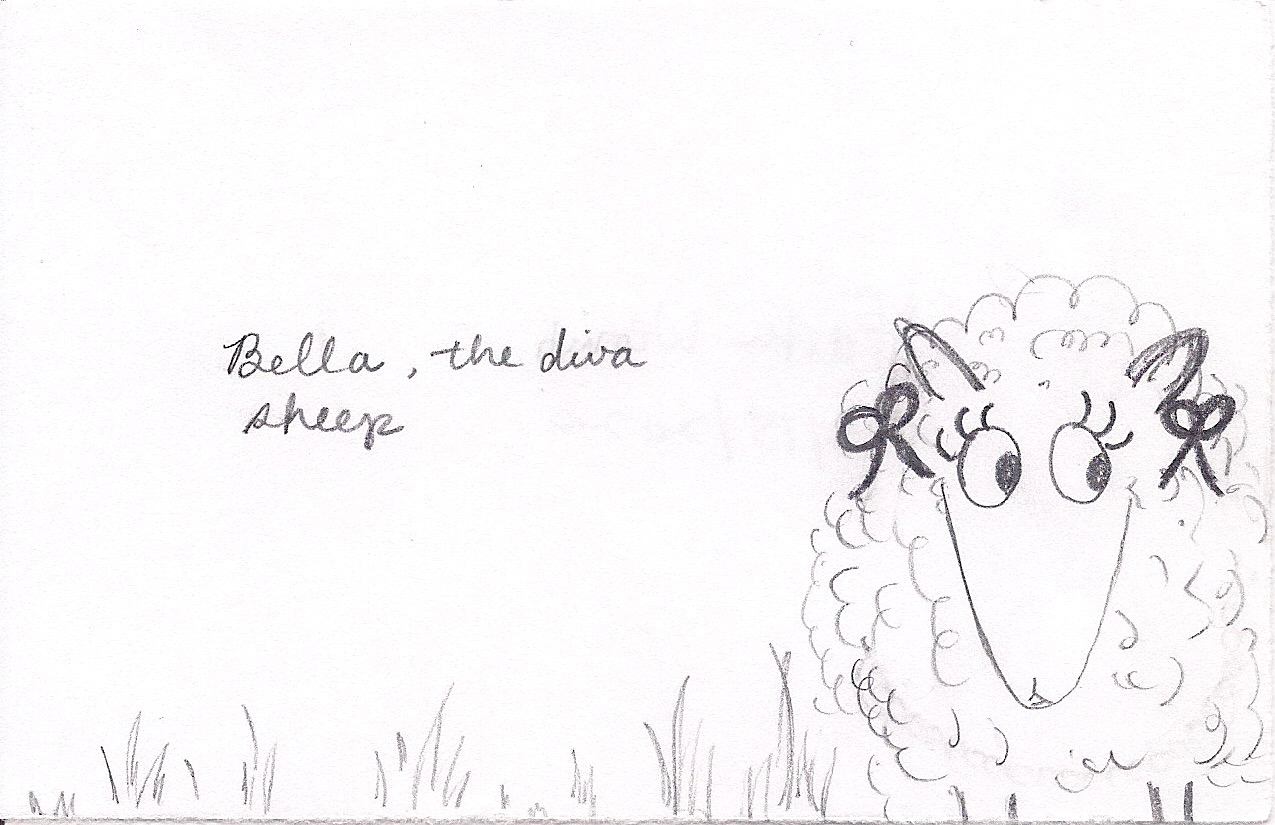 Bella, the diva
sheep